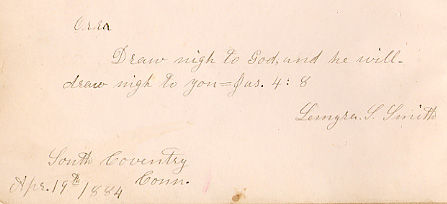 Orra
Draw nigh to God, and he will-
draw nigh to you=Jas. 4:8
S. Smith
South Coventry
Conn.
Apr. 19th 1884